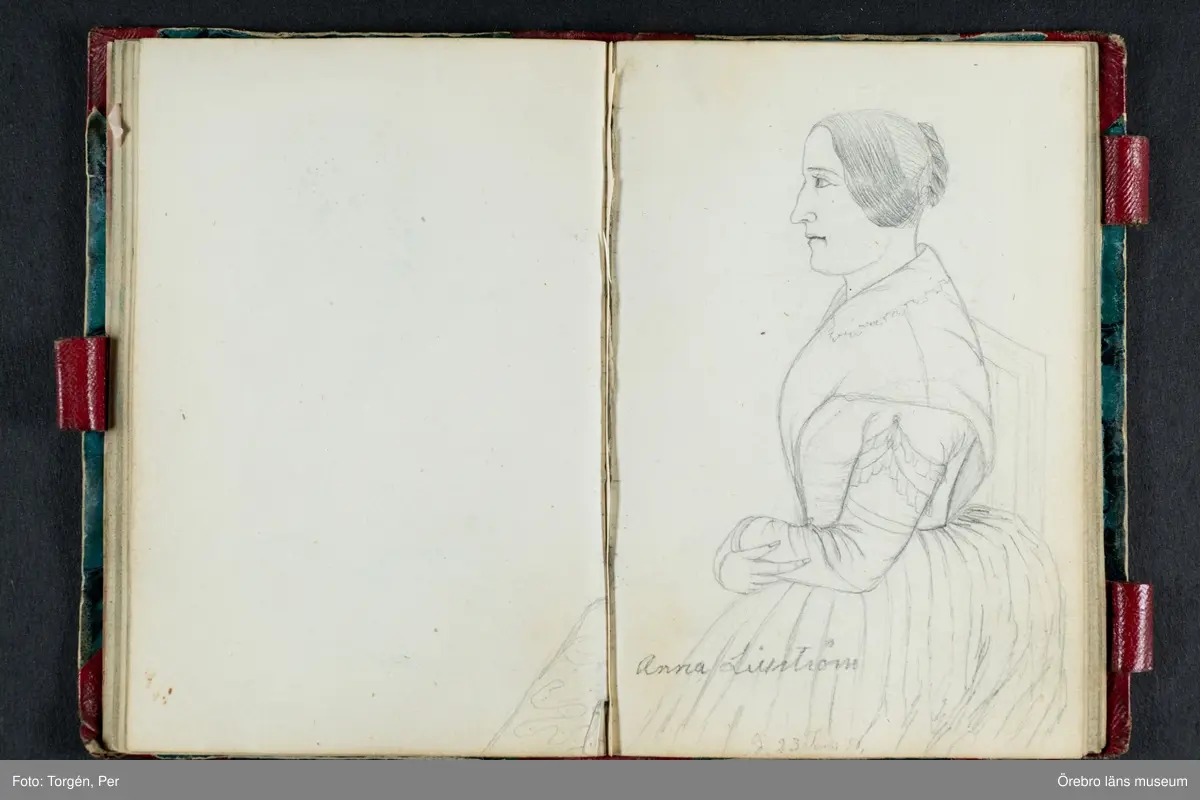 Anna Lillström
23
Foto: Torgén, Per
Örebro läns museum